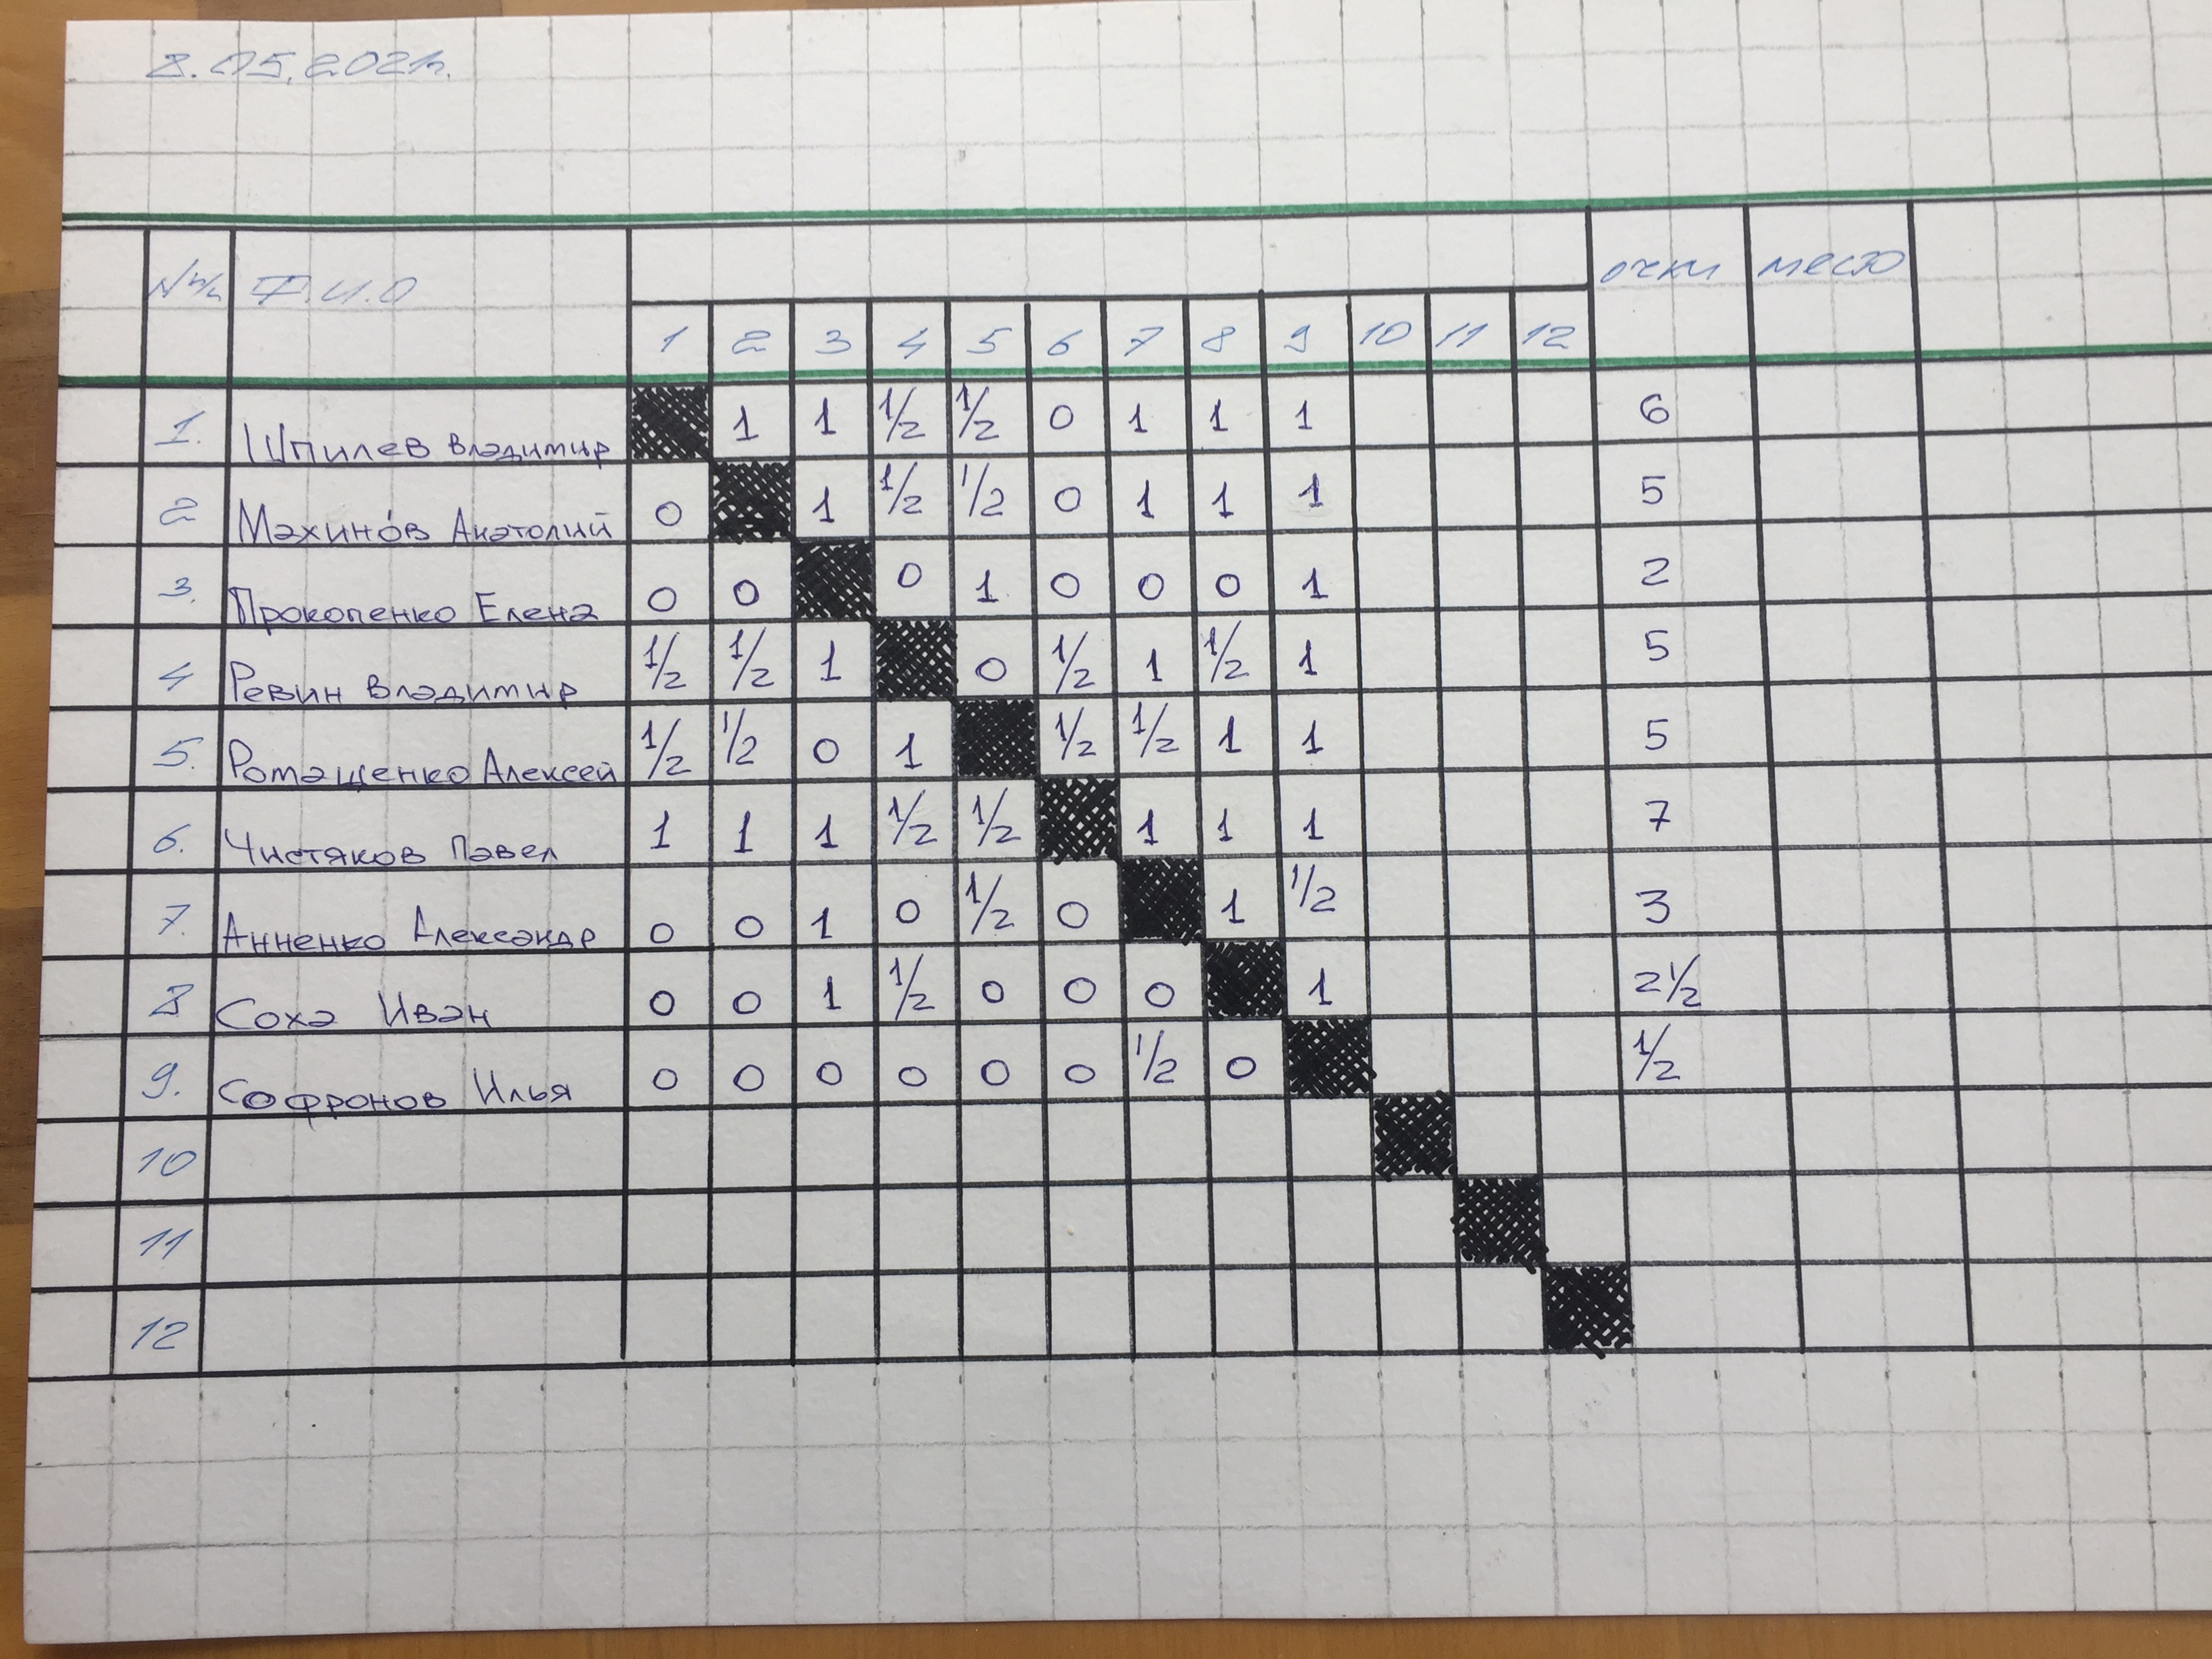 8.05.2021г.
№п/п Ф.И.О очки место
1 2 3 4 5 6 7 8 9 10 11 12
1. Шпилев Владимир 1 1 1/2 1/2 0 1 1 1 6
2 Махинов Анатолий 0 1 1/2 1/2 0 1 1 1 5
3. Прокопенко Елена 0 0 0 1 0 0 0 1 2
4 Ревин Владимир 1/2 1/2 1 0 1/2 1 1/2 1 5
5. Ромащенко Алексей 1/2 1/2 0 1 1/2 1/2 1 1 5
6. Чистяков Павел 1 1 1 1/2 1/2 1 1 1 7
7. Анненко Александр 0 0 1 0 1/2 0 1 1/2 3
8 Соха Иван 0 0 1 1/2 0 0 0 1 2 1/2
9. Софронов Илья 0 0 0 0 0 0 1/2 0 1/2
10
11
12